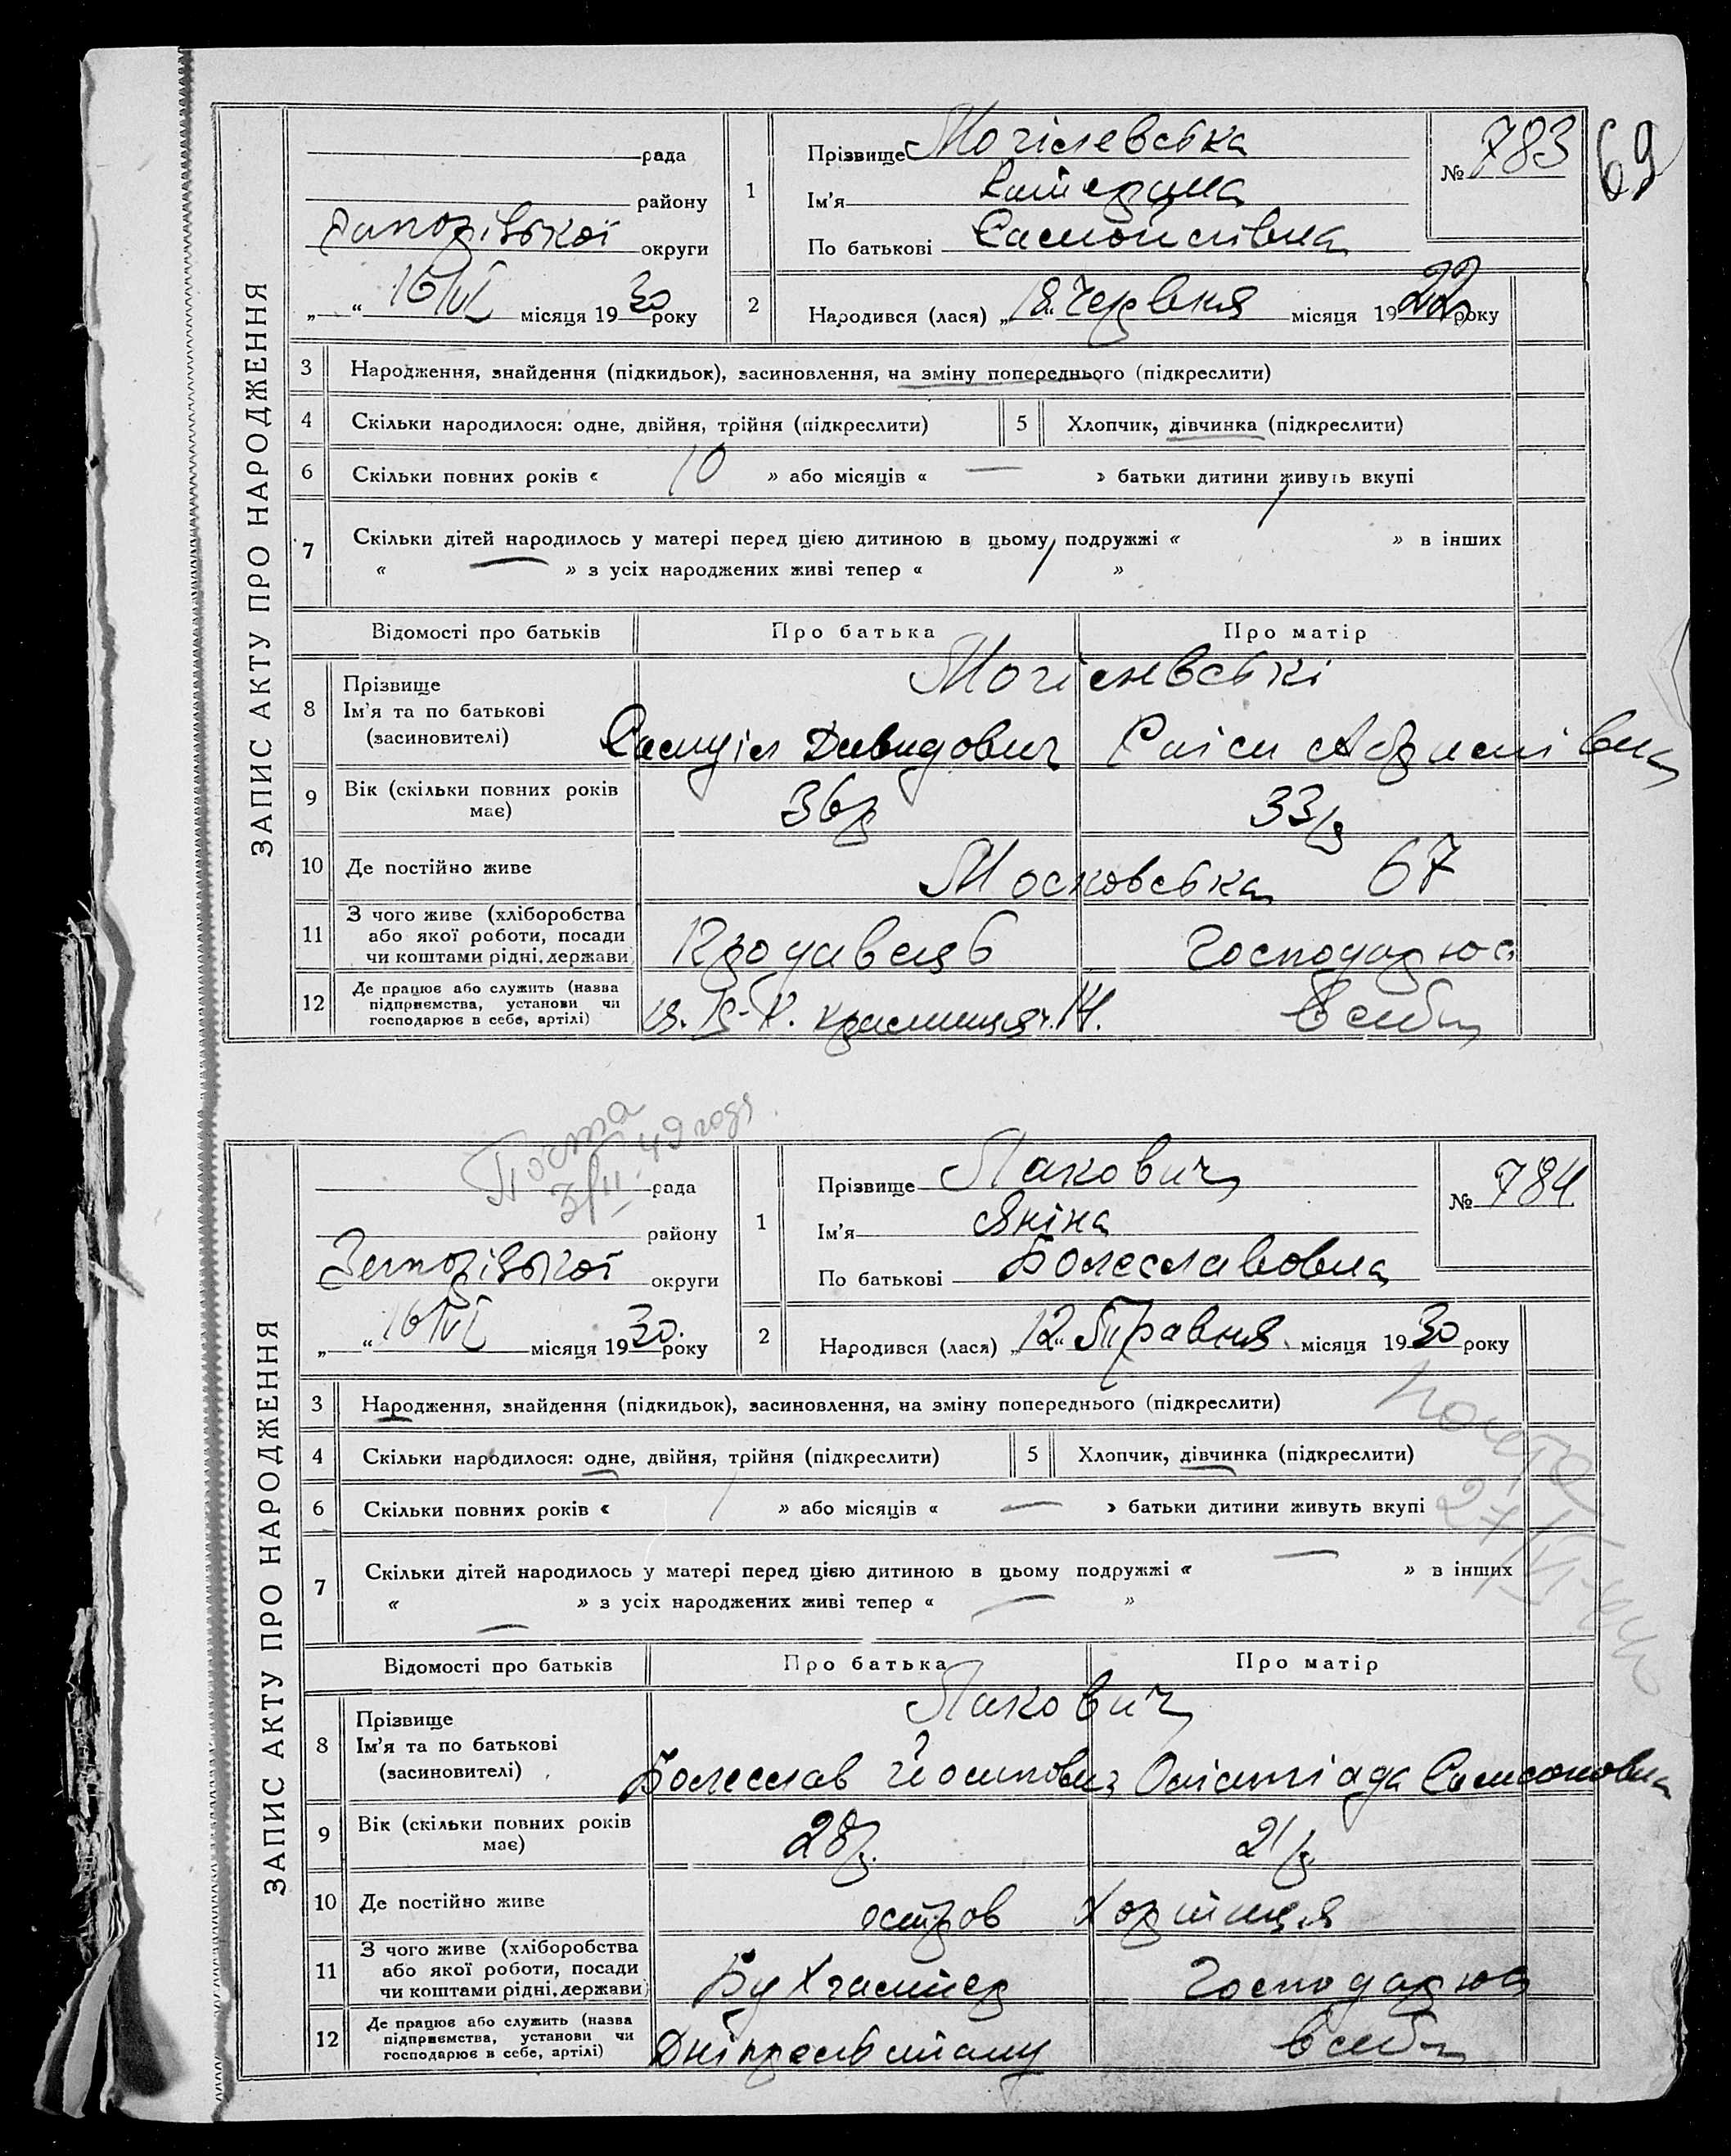 69
ЗАПИС АКТУ ПРО НАРОДЖЕННЯ
рада
району
Запорізької округи
„ “ 16/VI місяця 1930 року
1 Прізвище Могілевська
Ім'я Катерина
По батькові Самойлівна
№ 783
2 Народився (лася) „18“ Червня місяця 1922 року
3 Народження, знайдення (підкидьок), засиновлення, на зміну попереднього (підкреслити)
4 Скільки народилося: одне, двійня, трійня (підкреслити) 5 Хлопчик, дівчинка (підкреслити)
6 Скільки повних років « 10 » або місяців « — » батьки дитини живуть вкупі
7 Скільки дітей народилось у матері перед цією дитиною в цьому подружжі « 1 » в інших
« — » з усіх народжених живі тепер « 1 »
Відомості про батьків Про батька Про матір
8 Прізвище Ім'я та по батькові (засиновителі)
Могілевські
Самуіл Давидович Абрамівна
9 Вік (скільки повних років має) 36 р 33 р
10 Де постійно живе Московська 67
11 З чого живе (хліборобства або якої роботи, посади чи коштами рідні, держави) Продавець Господарює
12 Де працює або служить (назва підприємства, установи чи господарює в себе, артілі) крамниця ч. 14. в себе
Пошта 3/II 49 года
ЗАПИС АКТУ ПРО НАРОДЖЕННЯ
рада
району
Запорізької округи
„ “ 16/VI місяця 1930. року
1 Прізвище Лакович
Ім'я Яніна
По батькові Болеславовна
№ 784
2 Народився (лася) „12“ Травня місяця 1930 року
3 Народження, знайдення (підкидьок), засиновлення, на зміну попереднього (підкреслити)
4 Скільки народилося: одне, двійня, трійня (підкреслити) 5 Хлопчик, дівчинка (підкреслити)
6 Скільки повних років « 1 » або місяців « — » батьки дитини живуть вкупі
7 Скільки дітей народилось у матері перед цією дитиною в цьому подружжі « — » в інших
« — » з усіх народжених живі тепер « — »
Відомості про батьків Про батька Про матір
8 Прізвище Ім'я та по батькові (засиновителі)
Лакович
Болеслав Йосипович Олімпіада Самсоновна
9 Вік (скільки повних років має) 28 р. 21 р.
10 Де постійно живе остров Хортиця
11 З чого живе (хліборобства або якої роботи, посади чи коштами рідні, держави) Бухгалтер Господарює
12 Де працює або служить (назва підприємства, установи чи господарює в себе, артілі) в себе